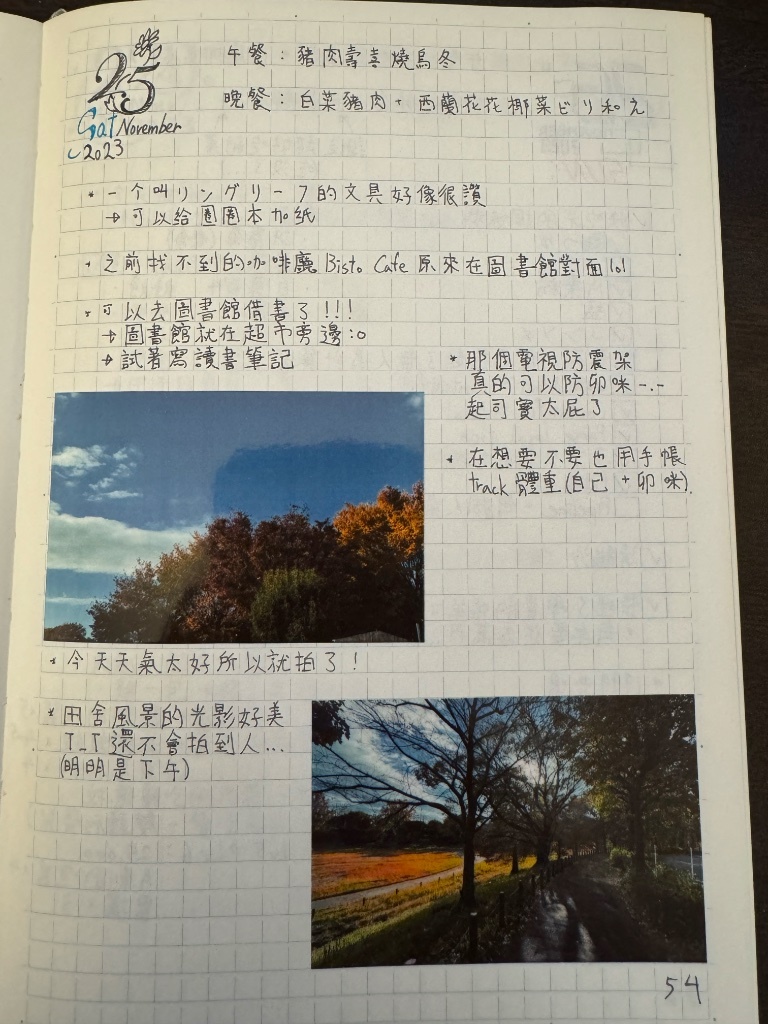 25
Sat November
2023
午餐：豬肉壽喜燒烏冬
晚餐：白菜豬肉+西蘭花花椰菜ピリ和え
*一个叫リングリーフ的文具好像很讚
→可以给圈圈本加紙
*之前找不到的咖啡廳 Bisto Cafe 原來在圖書館對面lol
*可以去圖書館借書了!!!
→圖書館就在超市旁邊:o
→試著寫讀書筆記
*那個電視防震架
真的可以防卯咪-.-
起司寶太屁了
*在想要不要也用手帳
track 體重(自己+卯咪).
*今天天氣太好所以就拍了!
*田舍風景的光影好美
T_T 還不會拍到人...
(明明是下午)
54